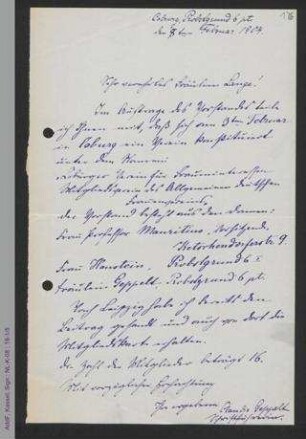 Coburg, Probstgrund 6 pt.
den 8ten Februar 1904.
Sehr verehrtes Fräulein Lange!
Im Auftrage des Vorstandes teile
ich Ihnen mit, daß sich am 3ten Februar
in Coburg ein Verein konstituirt
unter dem Namen:
Coburger Verein für Fraueninteressen
Mitgliedverein des Allgemeinen deutschen
Frauenvereins,
der Vorstand besteht aus den Damen:
Frau Professor Mauritius, Vorsitzende,
Ketschendorferstr. 9.
Frau Hanstein, Probstgrund 6 I
Fräulein Geppelt, Probstgrund 6 pt.
Nach Leipzig habe ich bereits den
Beitrag gesandt und auch von dort die
Mitgliedskarte erhalten.
die Zahl der Mitglieder beträgt 16.
Mit vorzüglicher Hochachtung
Ihre ergebene
Schriftführerin.